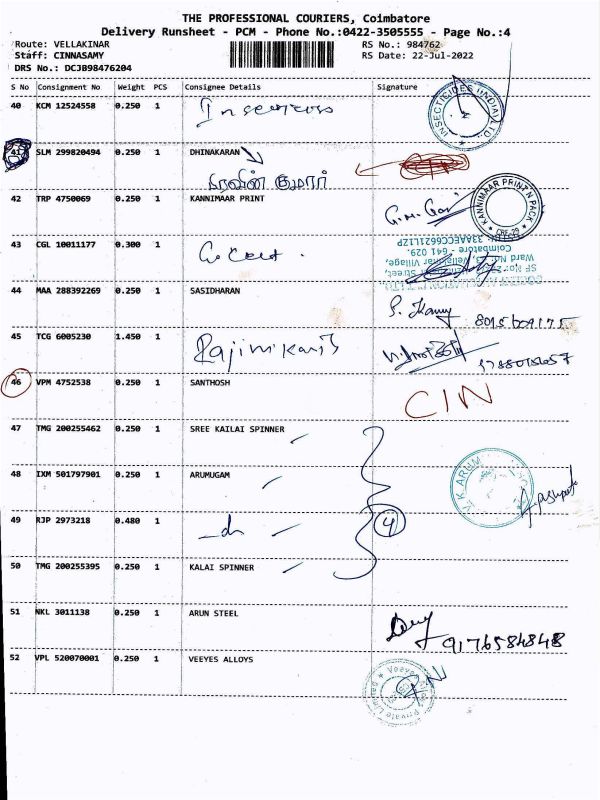 THE PROFESSIONAL COURIERS, Coimbatore
Delivery Runsheet - PCM - Phone No.:0422-3505555 - Page No.:4
Route: VELLAKINAR RS No.: 984762
Staff: CINNASAMY RS Date: 22-Jul-2022
DRS No.: DCJB98476204
S No Consignment No Weight PCS Consignee Details Signature
40 KCM 12524558 0.250 1
INSECTICIDES (INDIA) LTD
41 SLM 299820494 0.250 1 DHINAKARAN
42 TRP 4750069 0.250 1 KANNIMAAR PRINT
KANNIMAAR PRINT N PACK
CBE-29
43 CGL 10011177 0.300 1
33AAECC6621L1ZP
Coimbatore - 641 029.
44 MAA 288392269 0.250 1 SASIDHARAN
45 TCG 6005230 1.450 1 Rajinikanth
46 VPM 4752538 0.250 1 SANTHOSH CIN
47 TMG 200255462 0.250 1 SREE KAILAI SPINNER
48 IXM 501797901 0.250 1 ARUMUGAM
49 RJP 2973218 0.480 1 4
50 TMG 200255395 0.250 1 KALAI SPINNER
51 NKL 3011138 0.250 1 ARUN STEEL
9176584848
52 VPL 520070001 0.250 1 VEEYES ALLOYS